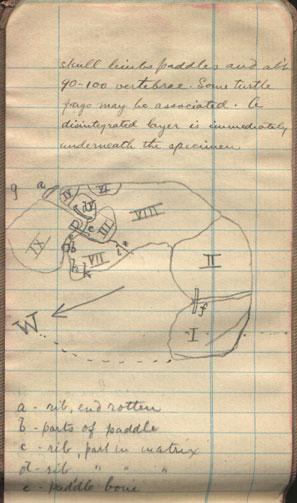 skull limbs paddles and abt
90-100 vertebrae. Some turtle
frags may be associated. A
disintegrated layer is immediately
underneath the specimen
g a IV VI
d V
D c III VIII
IX b
VII i
h k
II
f
I
W
a - rib, end rotten
b - parts of paddle
c - rib, part in matrix
d - rib " " "
e - paddle bone